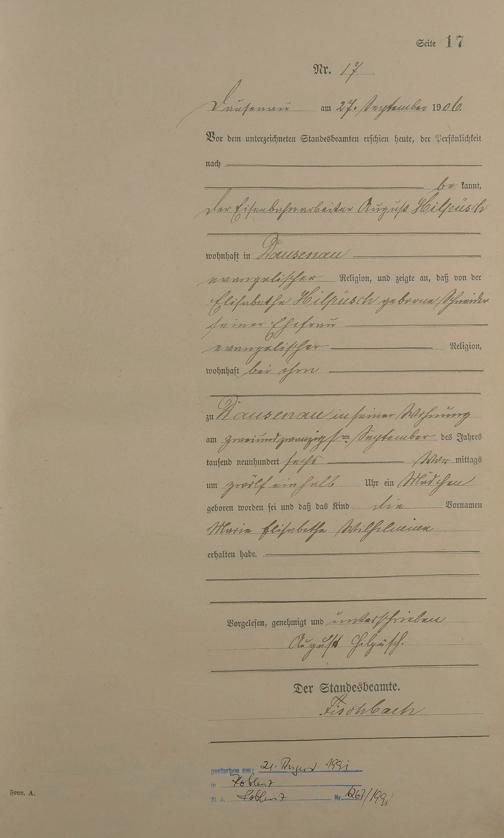 Seite 17
Nr. 17
Dausenau am 27. September 1906.
Vor dem unterzeichneten Standesbeamten erschien heute, der Persönlichkeit
nach
be kannt,
der Eisenbahnarbeiter August Hilpüsch
wohnhaft in Dausenau
evangelischer Religion, und zeigte an, daß von der
Elisabethe Hilpüsch geborne Schneider
seiner Ehefrau
evangelischer Religion,
wohnhaft bei ihm
zu Dausenau in seiner Wohnung
am zweiundzwanzigsten September des Jahres
tausend neunhundert sechs Vor mittags
um zwölf einhalb Uhr ein Mädchen
geboren worden sei und daß das Kind die Vornamen
Maria Elisabethe Wilhelmine
erhalten habe.
Vorgelesen, genehmigt und unterschrieben
August Hilpüsch.
Der Standesbeamte.
Fischbach
gestorben am: 21. August 1991
in Koblenz
St. A. Koblenz Nr. 1267/1991
Form. A.